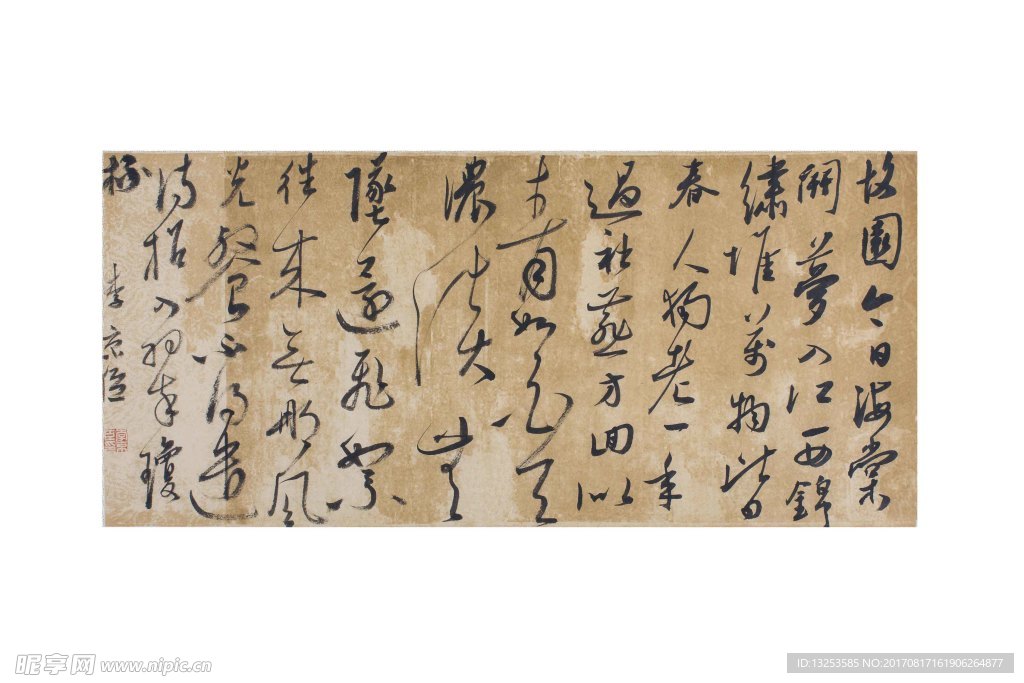 故園今日海棠
開夢入江西錦
繡堆萬物皆
春人獨老一年
過社燕方回似
青如白天
濃淡
墜還飛絮
往來無那風
光餐不得遣
詩招入翠瓊
杯
李
昵享网 www.nipic.cn
ID:13253585 NO:20170817161906264877